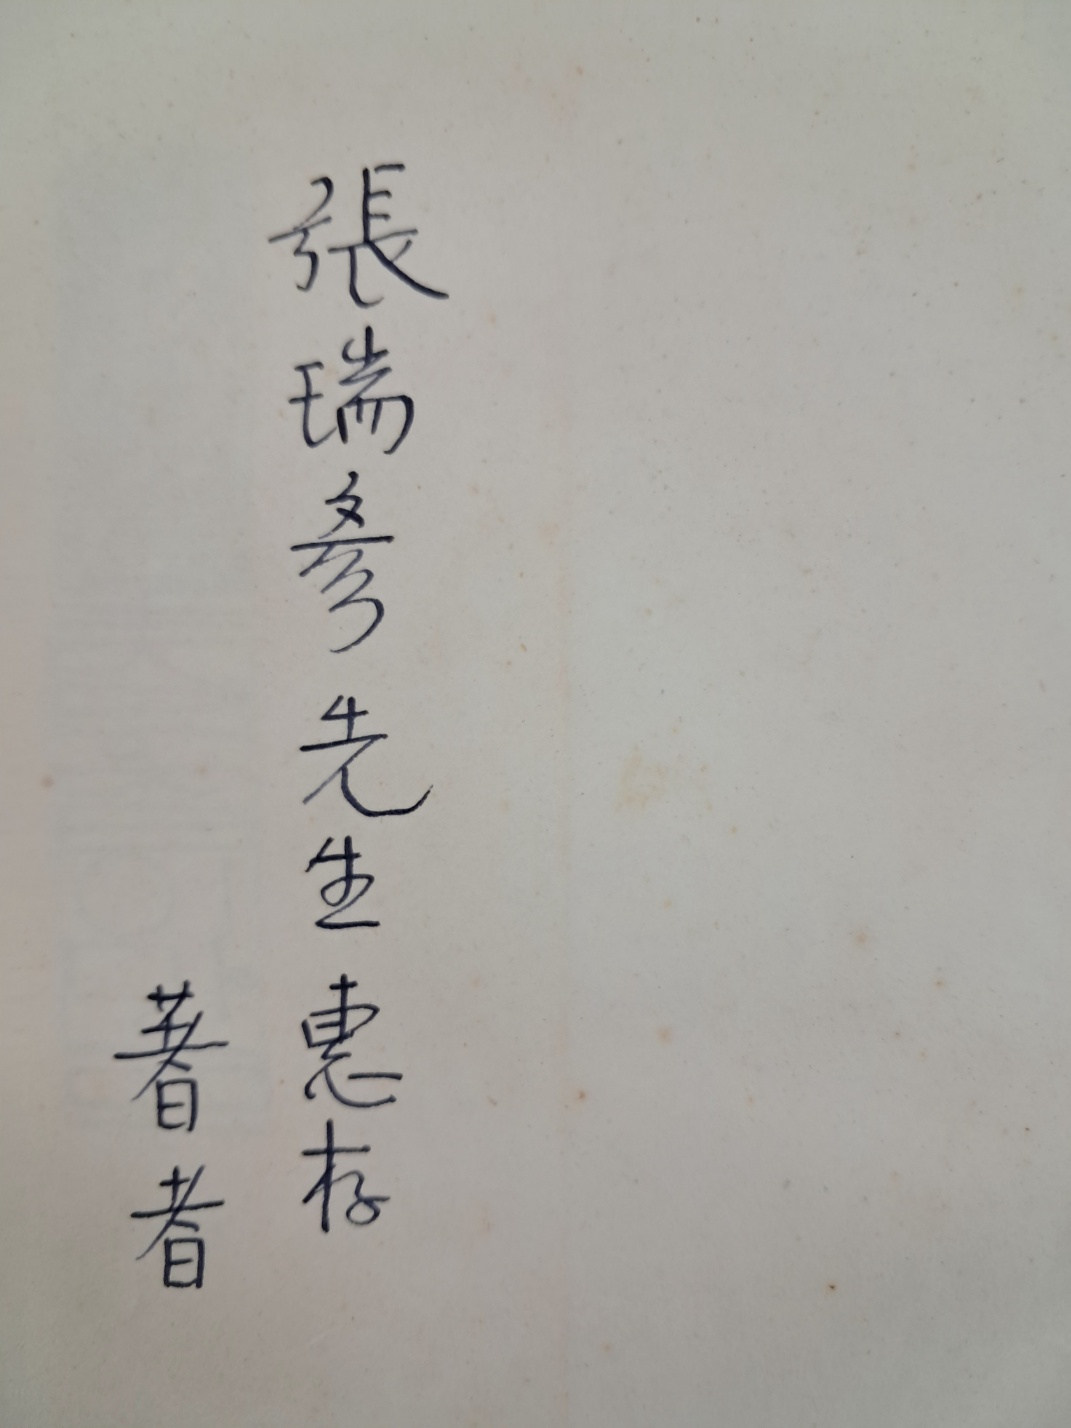 張瑞彥先生惠存
著者